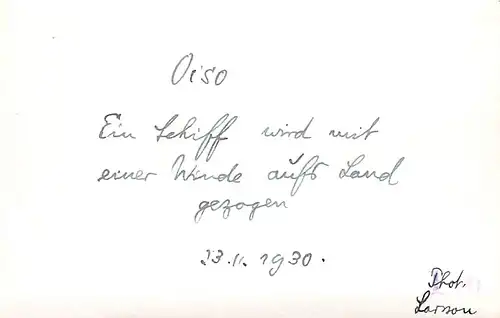 Oiso
Ein Schiff wird mit
einer Winde aufs Land
gezogen
23.11.1930.
Phot.
Larson